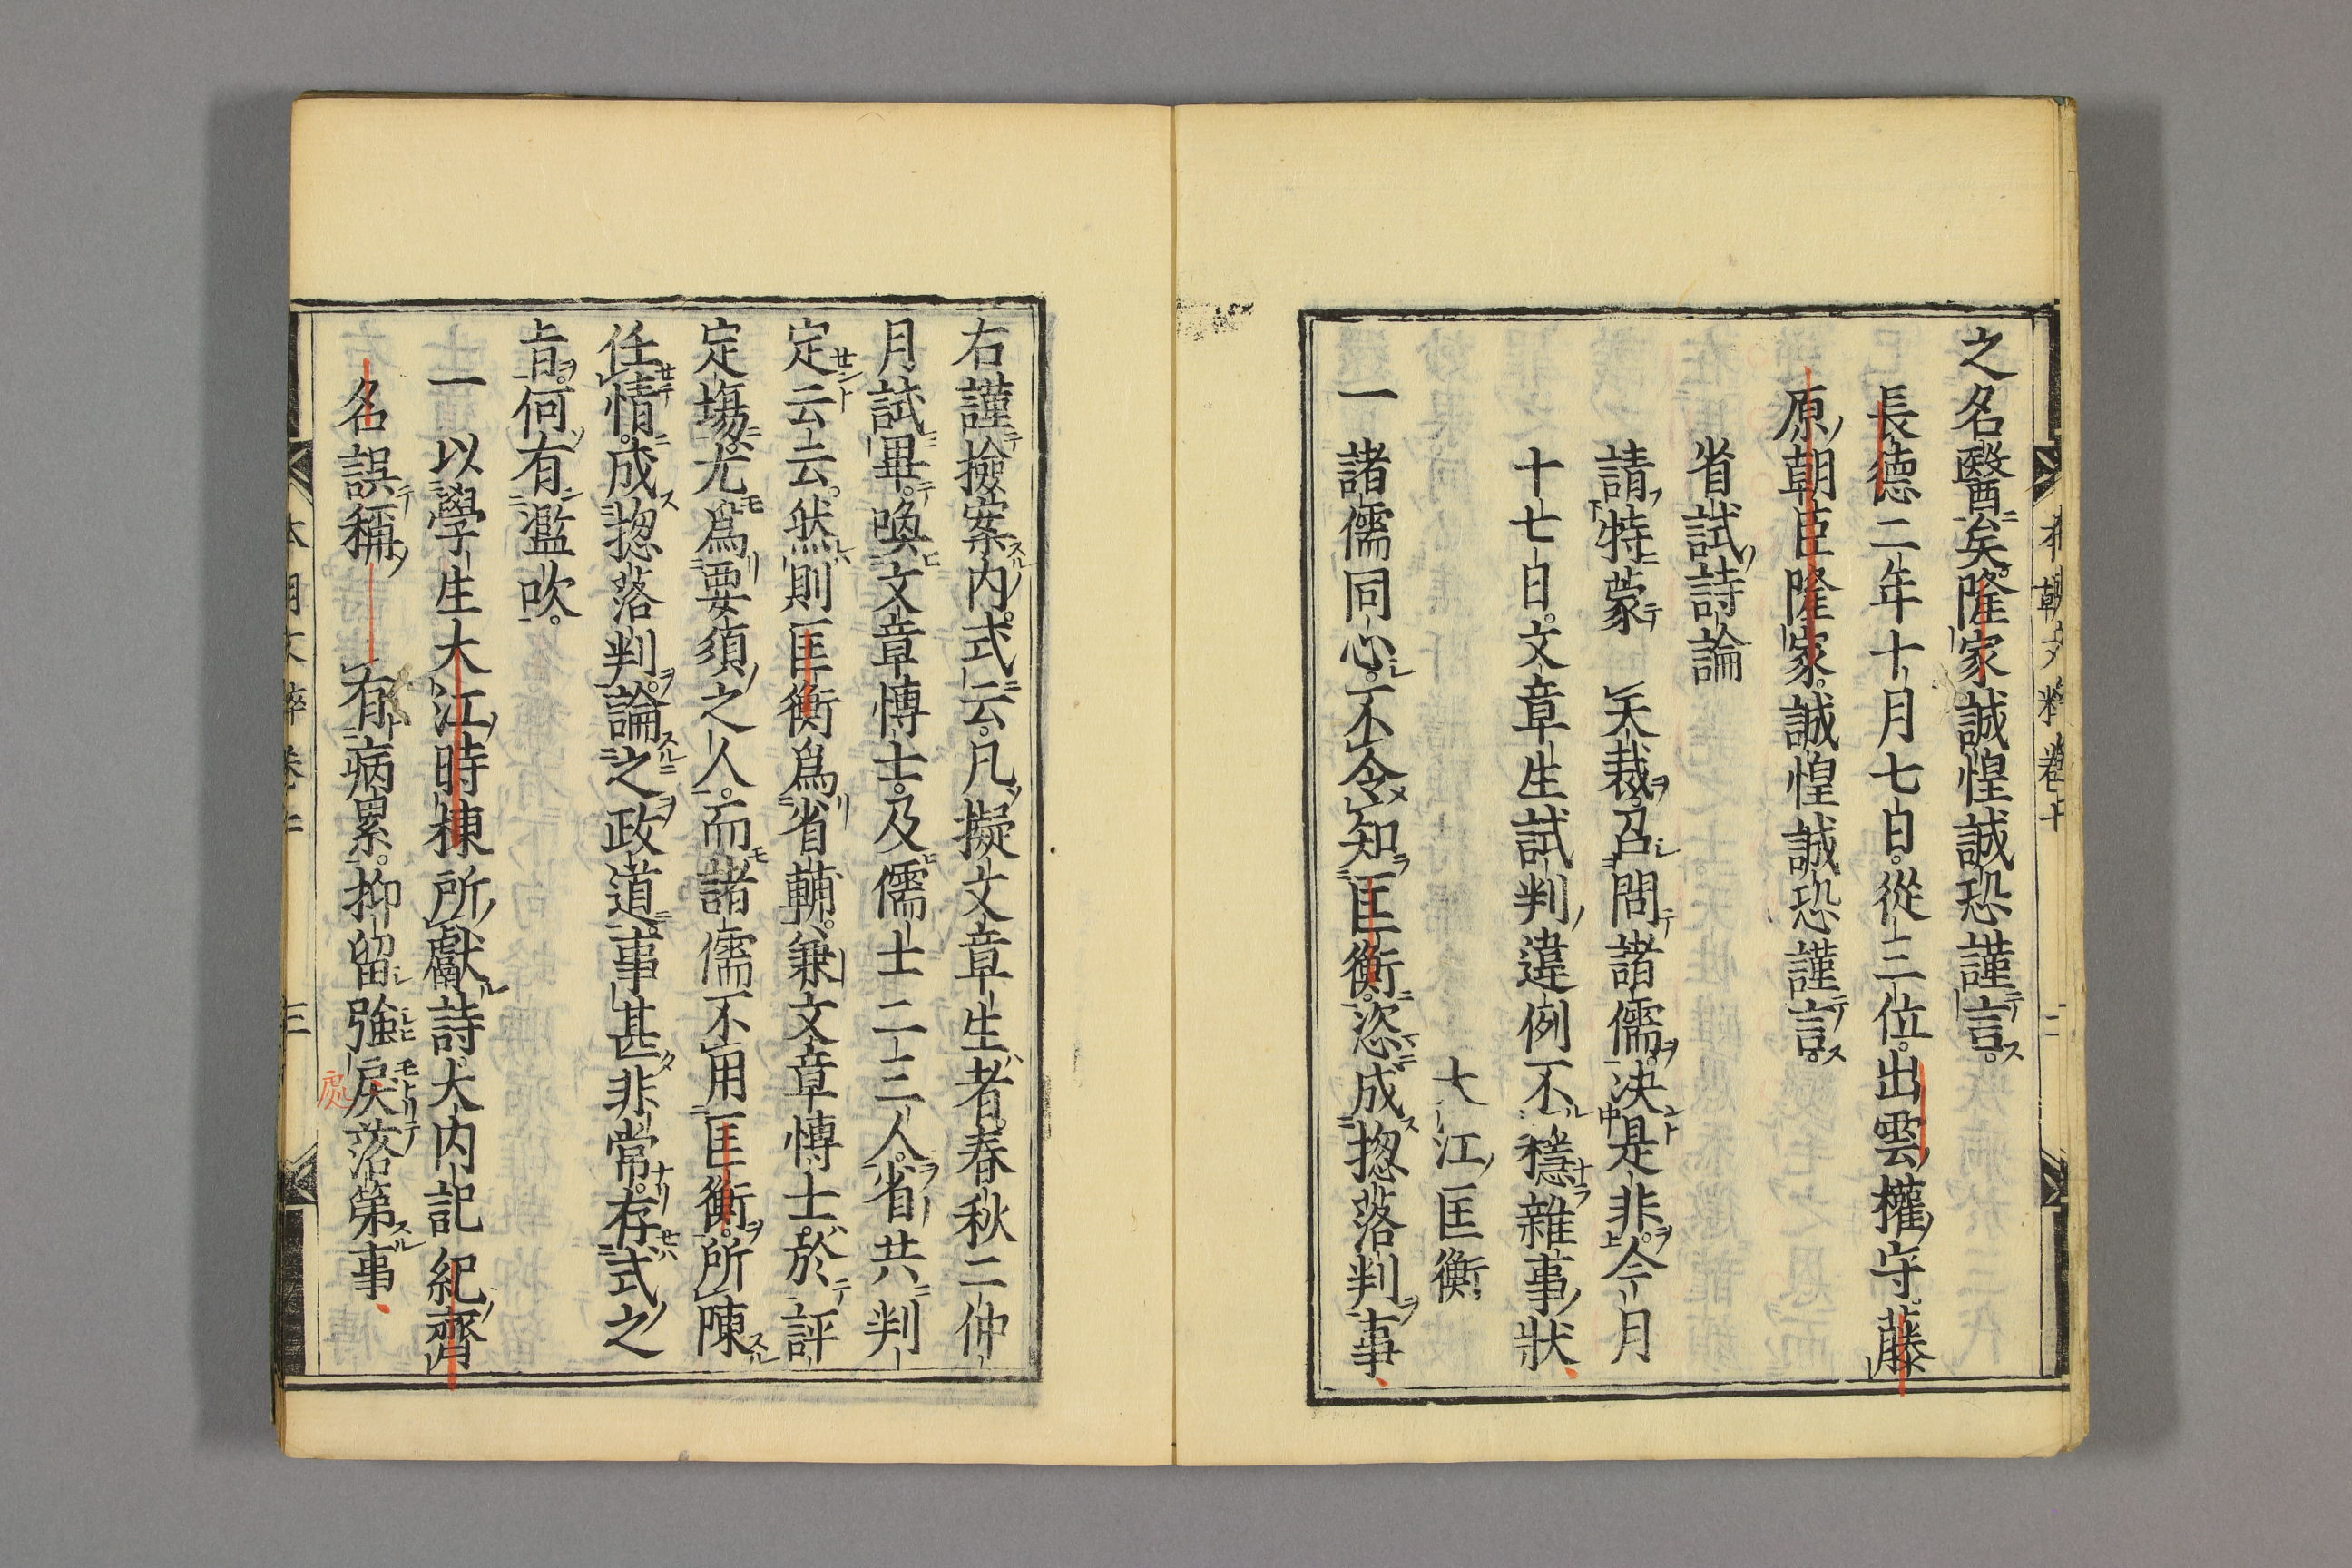 之名醫矣隆家誠惶誠恐謹言
長德二年十月七日從三位出雲權守藤
原朝臣隆家誠惶誠恐謹言
省試詩論
請特蒙 天裁召問諸儒決是非今月
十七日文章生試判違例不穩雜事狀
大江匡衡
一 諸儒同心不令知匡衡恣成揔落判事
右謹撿案內式云凡擬文章生者春秋二仲
月試畢喚文章愽士及儒士二三人省共判
定云云然則匡衡爲省輔兼文章愽士於評
定塲尤爲要須之人而諸儒不用匡衡所陳
任情成揔落判論之政道事甚非常存式之
旨何有濫吹
一 以學生大江時棟所獻詩大內記紀齊
名誤稱 有病累抑留強戾落第事